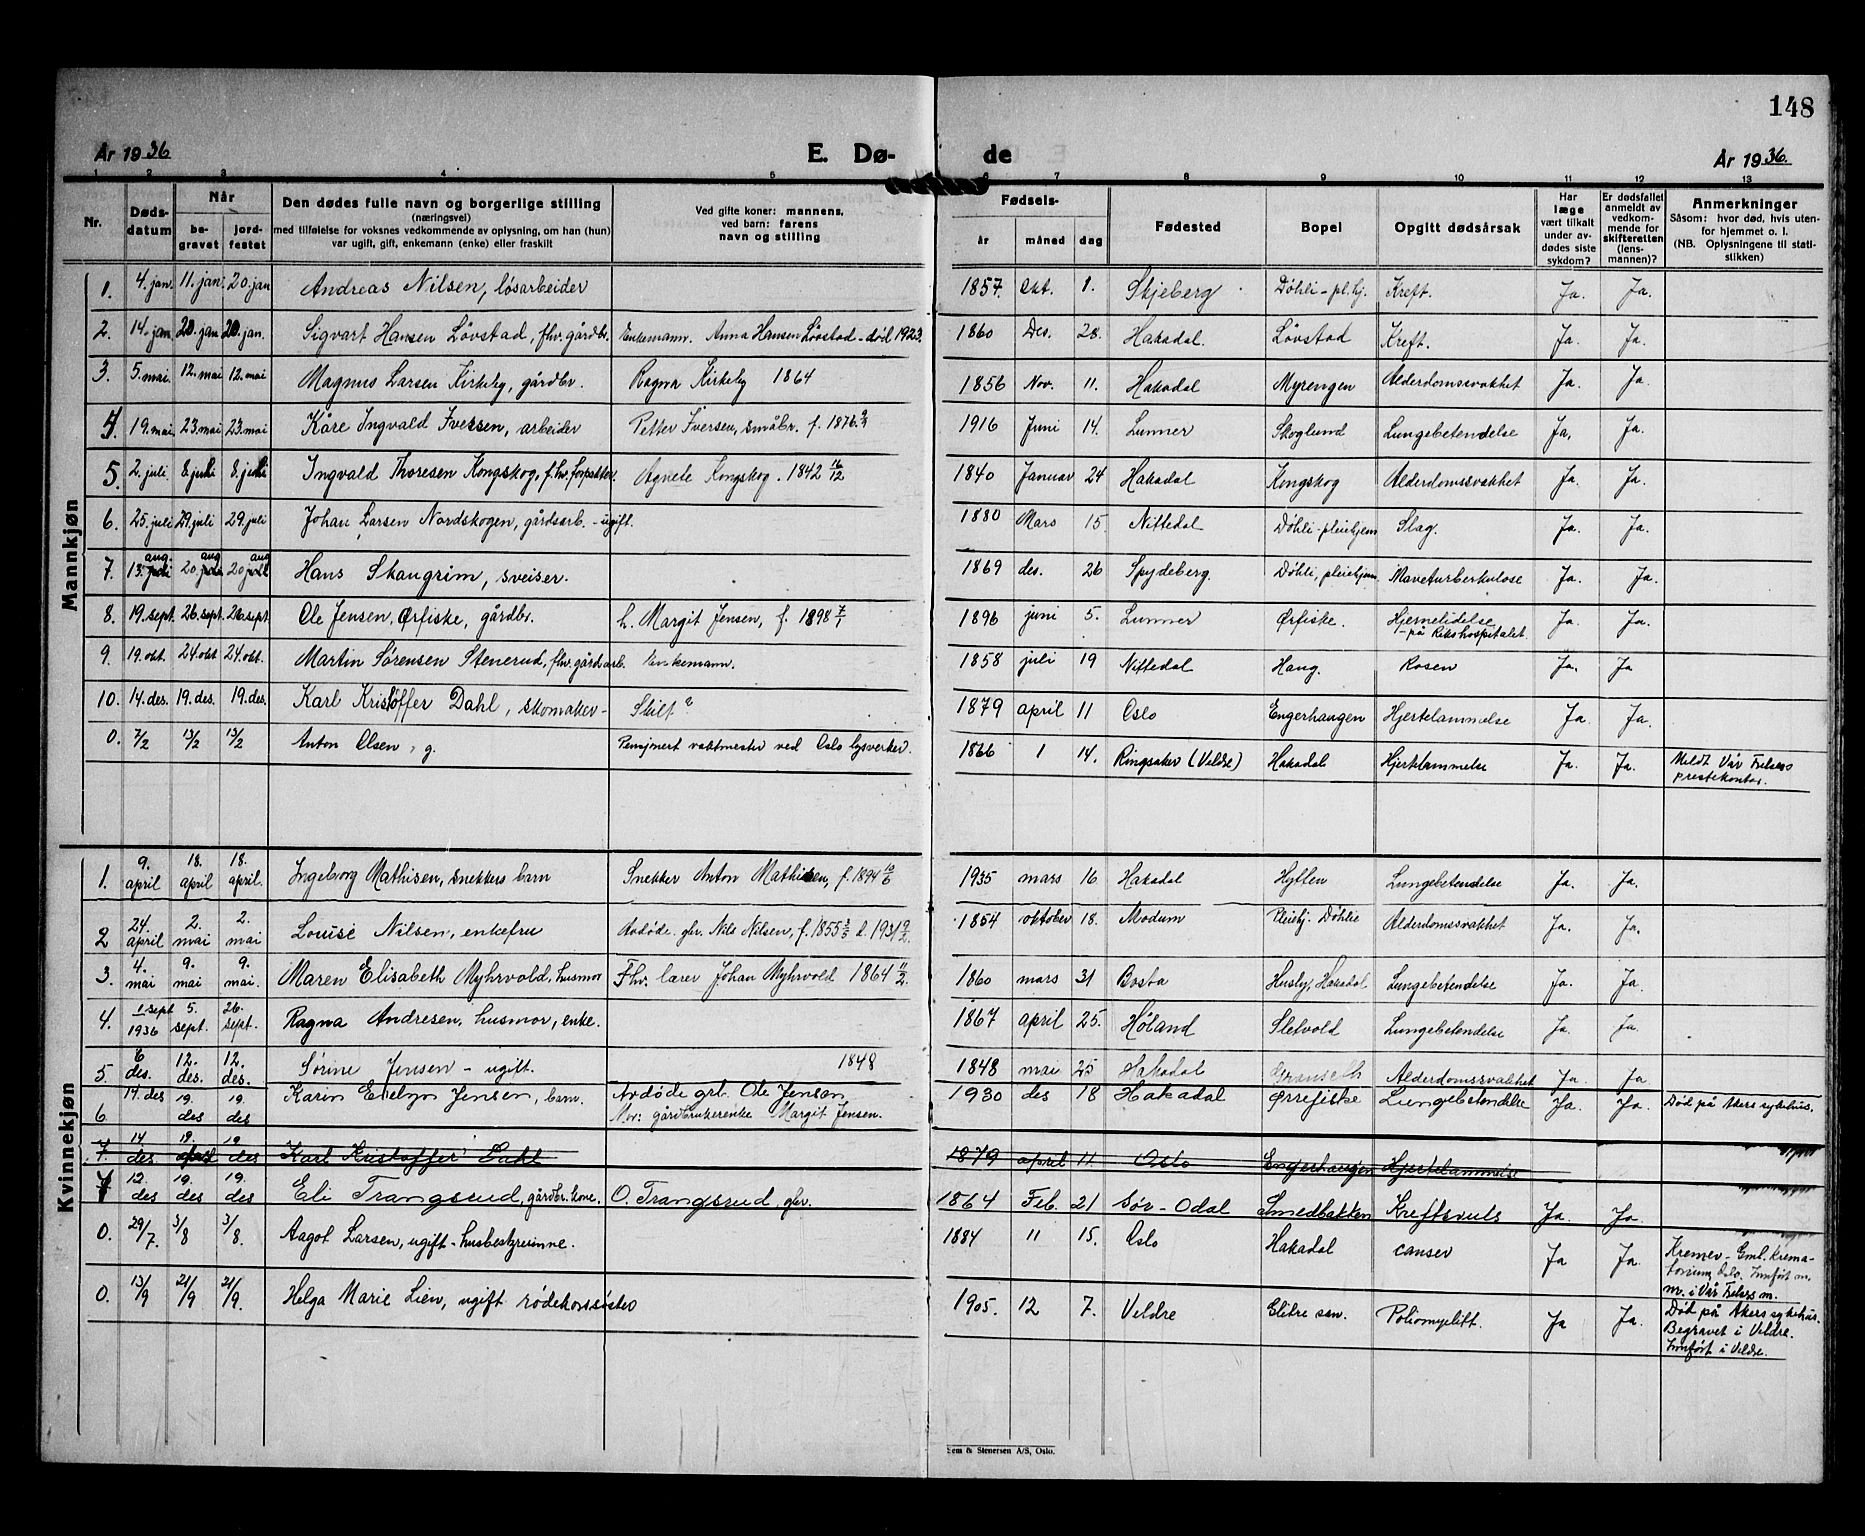 148
År 1936 E. Dø- de År 1936.
1 2 3 4 5 6 7 8 9 10 11 12 13
Nr. Døds-datum Når be-gravet jord-festet Den dødes fulle navn og borgerlige stilling (næringsvei) med tilføielse for voksnes vedkommende av oplysning, om han (hun) var ugift, gift, enkemann (enke) eller fraskilt Ved gifte koner: mannens, ved barn: farens navn og stilling Fødsels- år måned dag Fødested Bopel Opgitt dødsårsak Har læge vært tilkalt under av-dødes siste sykdom? Er dødsfallet anmeldt av vedkom-mende for skifteretten (lens-mannen)? Anmerkninger Såsom: hvor død, hvis uten-for hjemmet o. l. (NB. Oplysningene til stati-stikken)
Mannkjøn
1. 4. jan. 11. jan. 20. jan Andreas Nilsen, løsarbeider 1857. Okt. 8. Skjeberg Døhli-pl.hj. Kreft. Ja. Ja.
2. 14. jan 20. jan 20. jan. Sigvart Hansen Løvstad, fhv. gårdbr. Enkemann. Anna Hansen Løvstad - død 1923. 1860 Des. 28. Hakadal. Løvstad Kreft. Ja. Ja.
3. 5. mai. 12. mai 12. mai Magnus Larsen Kirkeby, gårdbr. Ragna Kirkeby 1864 1856 Nov. 11. Hakadal Myrengen Alderdomssvakhet Ja. Ja.
4. 19. mai 23. mai 23. mai Kåre Ingvald Iversen, arbeider Petter Iversen, småbr. f. 1876 9/3 1916 Juni 14. Lunner Skoglund Lungebetendelse Ja, Ja.
5. 2. juli 8. juli 8. juli Ingvald Thoresen Kongskog, f.hv. forpakter. Agnete Kongskog. 1842 16/12 1840 Januar 24 Hakadal Kongskog Alderdomssvakhet Ja. Ja.
6. 25. juli 29. juli 29. juli Johan Larsen Nordskogen, gårdsarb. - ugift. 1880 Mars 15. Nittedal Døhli-pleiehjem Slag. Ja. Ja.
7. 13. aug. 20. aug 20 aug Hans Skaugrim, sveiser. 1869 des. 26 Spydeberg. Døhli, pleiehjem Maveturberkulose Ja. Ja.
8. 19. sept. 26. sept. 26. sept. Ole Jensen, Ørfiske, gårdbr. h. Margit Jensen, f. 1898 7/1 1896 juni 5. Lunner Ørfiske. Hjernelidelse - på Rikshospitalet. Ja. Ja.
9. 19. okt. 24. okt 24. okt. Martin Sørensen Stenerud, fhv. gårdsarb. Enkemann. 1858 juli 19 Nittedal Haug. Rosen Ja. Ja
10. 14. des. 19. des. 19. des. Karl Kristoffer Dahl, skomaker - Skilt? 1879 april 11 Oslo Engerhaugen Hjertelammelse Ja. Ja.
0. 7/2 13/2 13/2 Anton Olsen, g. Pensjonert vaktmester ved Oslo lysverker. 1866 1 14. Ringsaker (Veldre) Hakadal Hjertelammelse Ja. Ja. Meldt Vår Frelsers prestekontor.
Kvinnekjøn
1. 9. april 18. april 18. april. Ingeborg Mathisen, snekkers barn Snekker Anton Mathisen, f. 1894 10/6 1935 mars 16 Hakadal Hytten Lungebetendelse Ja. Ja.
2 24. april 2. mai 2. mai Louise Nilsen, enkefru Avdøde gbr. Nils Nilsen, f. 1855 3/3 d. 1931 9/2. 1854 oktober 18. Modum Pleiehj. Døhlie Alderdomssvakhet Ja. Ja.
3. 4. mai 9. mai 9. mai. Maren Elisabeth Myhrvold, husmor Fhv. lærer Johan Myhrvold 1864 11/2. 1860 mars 31 Husby, Hakadal Lungebetendelse Ja. Ja.
4. 1. sept 1936 5. sept. 26. sept. Ragna Andresen, husmor, enke. 1867 april 25. Høland Sletvold Lungebetendelse Ja. Ja.
5. 6 des. 12. des. 12. des. Sørine Jensen - ugift. 1848 1848 mai 25 Hakadal Alderdomssvakhet Ja. Ja.
6. 14. des 19. des 19. des Karin Evelyn Jensen, barn. Avdøde grb. Ole Jensen Mor: gårdbrukerenke Margit Jensen. 1930 des 18 Hakadal Ørrefiske Lungebetendelse Ja. Ja. Død på Akers sykehus.
7. 14 des 19. des 19 des Karl Kristoffer Dahl 1879 april 11 Oslo Engerhaugen Hjertelammelse
7 12. des 19. des 19. des Eli Trangsrud, gårdbr. kone. O. Trangsrud, gbr. 1864 Feb. 21 Sør-Odal Smedbakken Kreftsvuls Ja. Ja.
0. 29/7. 3/8 3/8. Aagot Larsen, ugift - husbestyrerinne. 1884 11 15. Oslo Hakadal canser Ja Ja. Kremer - Gml. Krema-torium, Oslo. Innført m. m. i Vår Frelsers m.
0. 13/9 21/9 21/9. Helga Marie Lien, ugift rødekorssøster 1905. 12 7. Veldre Elitre san. Poliomyelitt. Ja Ja. Død på Akers sykehus. Begravet i Veldre. Innført i Veldre.
Sem & Stenersen A/S, Oslo.